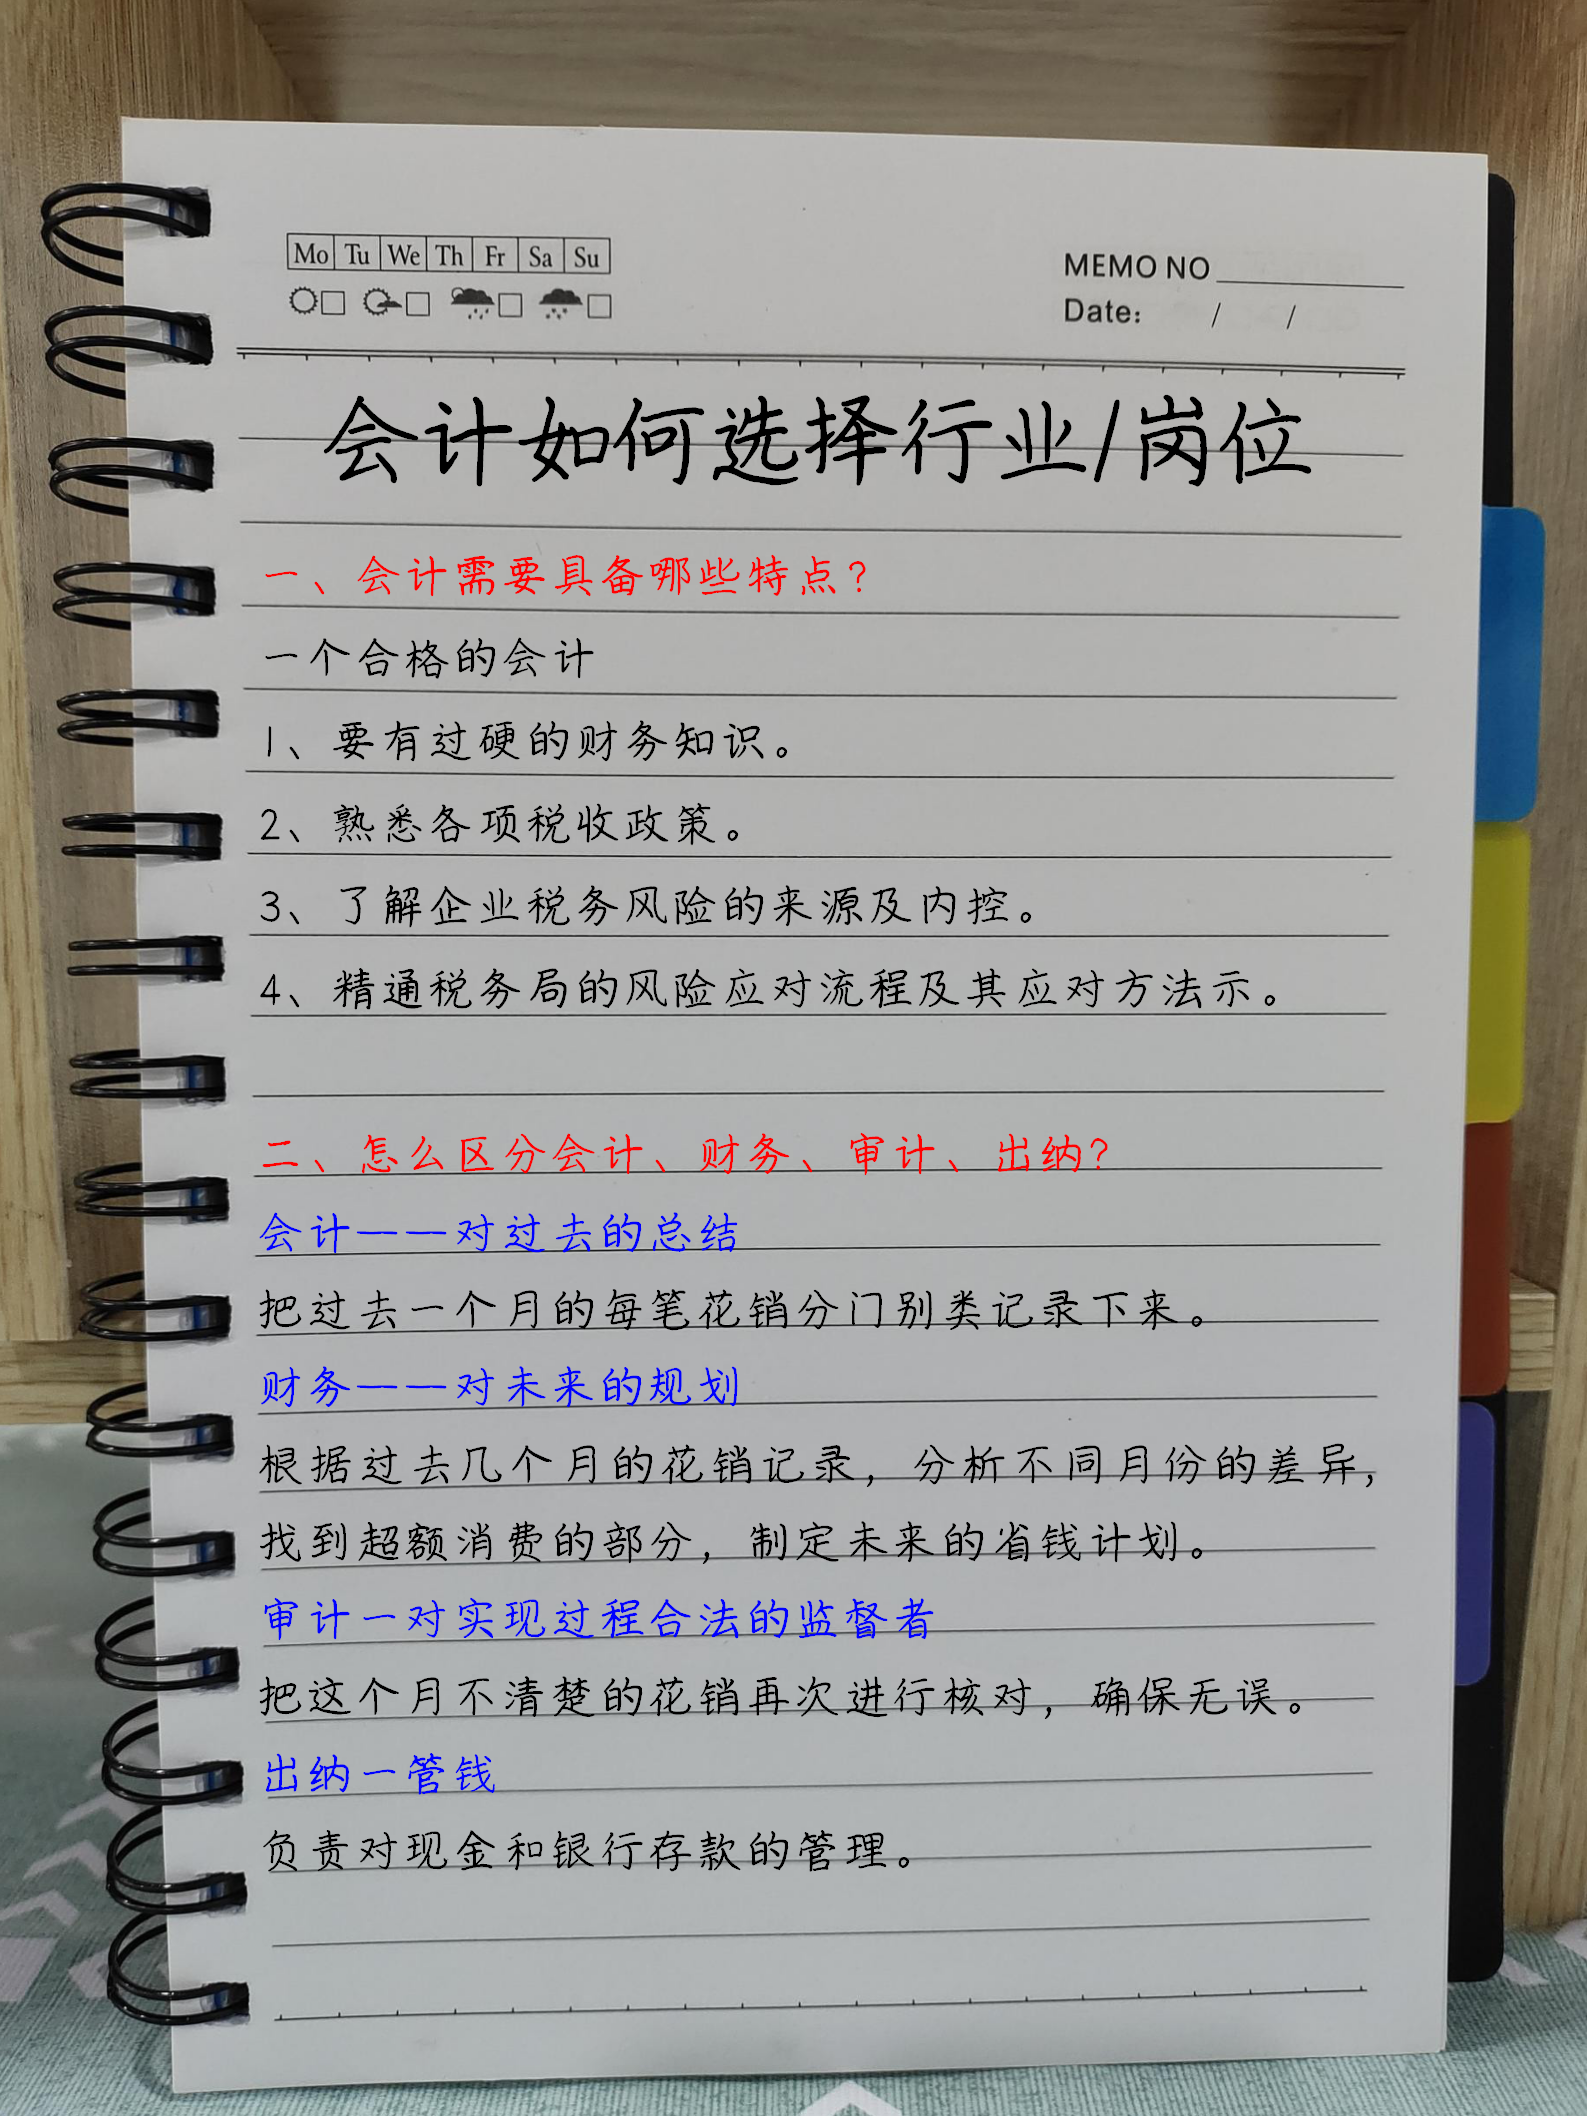 Mo Tu We Th Fr Sa Su
MEMO NO
Date: / /
会计如何选择行业/岗位
一、会计需要具备哪些特点?
一个合格的会计
1、要有过硬的财务知识。
2、熟悉各项税收政策。
3、了解企业税务风险的来源及内控。
4、精通税务局的风险应对流程及其应对方法示。
二、怎么区分会计、财务、审计、出纳?
会计——对过去的总结
把过去一个月的每笔花销分门别类记录下来。
财务——对未来的规划
根据过去几个月的花销记录，分析不同月份的差异，
找到超额消费的部分，制定未来的省钱计划。
审计一对实现过程合法的监督者
把这个月不清楚的花销再次进行核对，确保无误。
出纳一管钱
负责对现金和银行存款的管理。